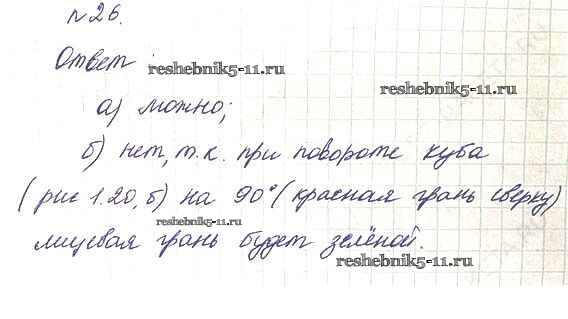 № 26.
Ответ
reshebnik5-11.ru
reshebnik5-11.ru
а) можно;
б) нет, т.к. при повороте куба
(рис 1.20, б) на 90° (красная грань сверху)
reshebnik5-11.ru
лицевая грань будет зелёной.
reshebnik5-11.ru